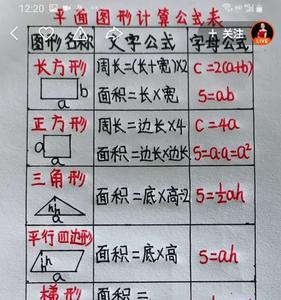 12:20
平面图形计算公式表
+ 关注
LIVE
图形名称 文字公式 字母公式
长方形 周长=(长+宽)×2 C=2(a+b)
b
a
面积=长×宽 S=ab
正方形 周长=边长×4 C=4a
a
a
面积=边长×边长 S=a·a=a²
三角形
面积=底×高÷2 S=½ah
h
a
平行四边形
面积=底×高 S=ah
h
a
梯形 面积=